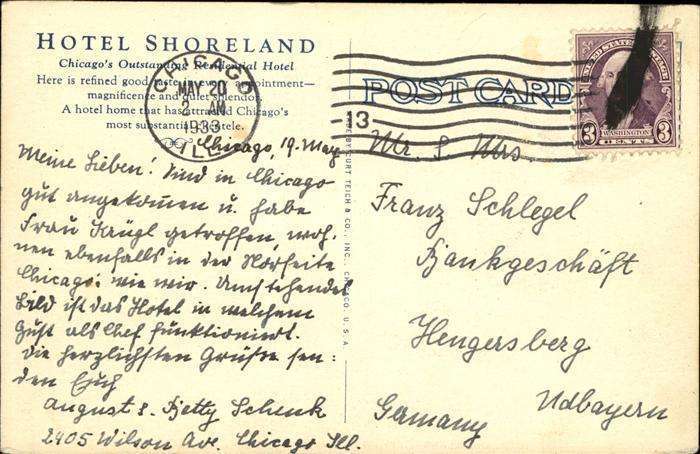 HOTEL SHORELAND
Chicago's Outstanding Residential Hotel
Here is refined good taste in every appointment—
magnificence and quiet splendor.
A hotel home that has attracted Chicago's
most substantial clientele.
CHICAGO
MAY 20
2 AM
1933
ILL.
13
POST CARD
UNITED STATES POSTAGE
3 WASHINGTON 3
MADE BY CURT TEICH & CO., INC., CHICAGO, U.S.A.
Chicago, 19. May
Meine Lieben! Sind in Chicago
gut angekommen u. habe
Frau getroffen, woh-
nen ebenfalls in der Nordseite
Chicago, wie wir. Umstehendes
Bild ist das Hotel in welchem
Gust als Chef funktioniert.
Die herzlichsten Grüße sen-
den Euch
August & Betty Schenk
2405 Wilson Ave. Chicago Ill.
Mr. & Mrs
Franz Schlegel
Bankgeschäft
Hengersberg
Ndbayern
Germany